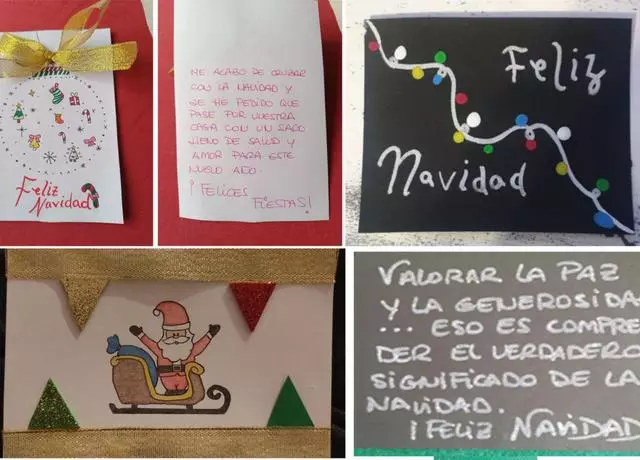 Feliz
Navidad
ME ACABO DE CRUZAR
CON LA NAVIDAD Y
SE HE PEDIDO QUE
PASE POR VUESTRA
CASA CON UN SACO
LLENO DE SALUD Y
AMOR PARA ESTE
NUEVO AÑO.
¡FELICES
FIESTAS!
Feliz
Navidad
VALORAR LA PAZ
Y LA GENEROSIDA
... ESO ES COMPRE
DER EL VERDADERO
SIGNIFICADO DE LA
NAVIDAD.
¡FELIZ NAVIDAD